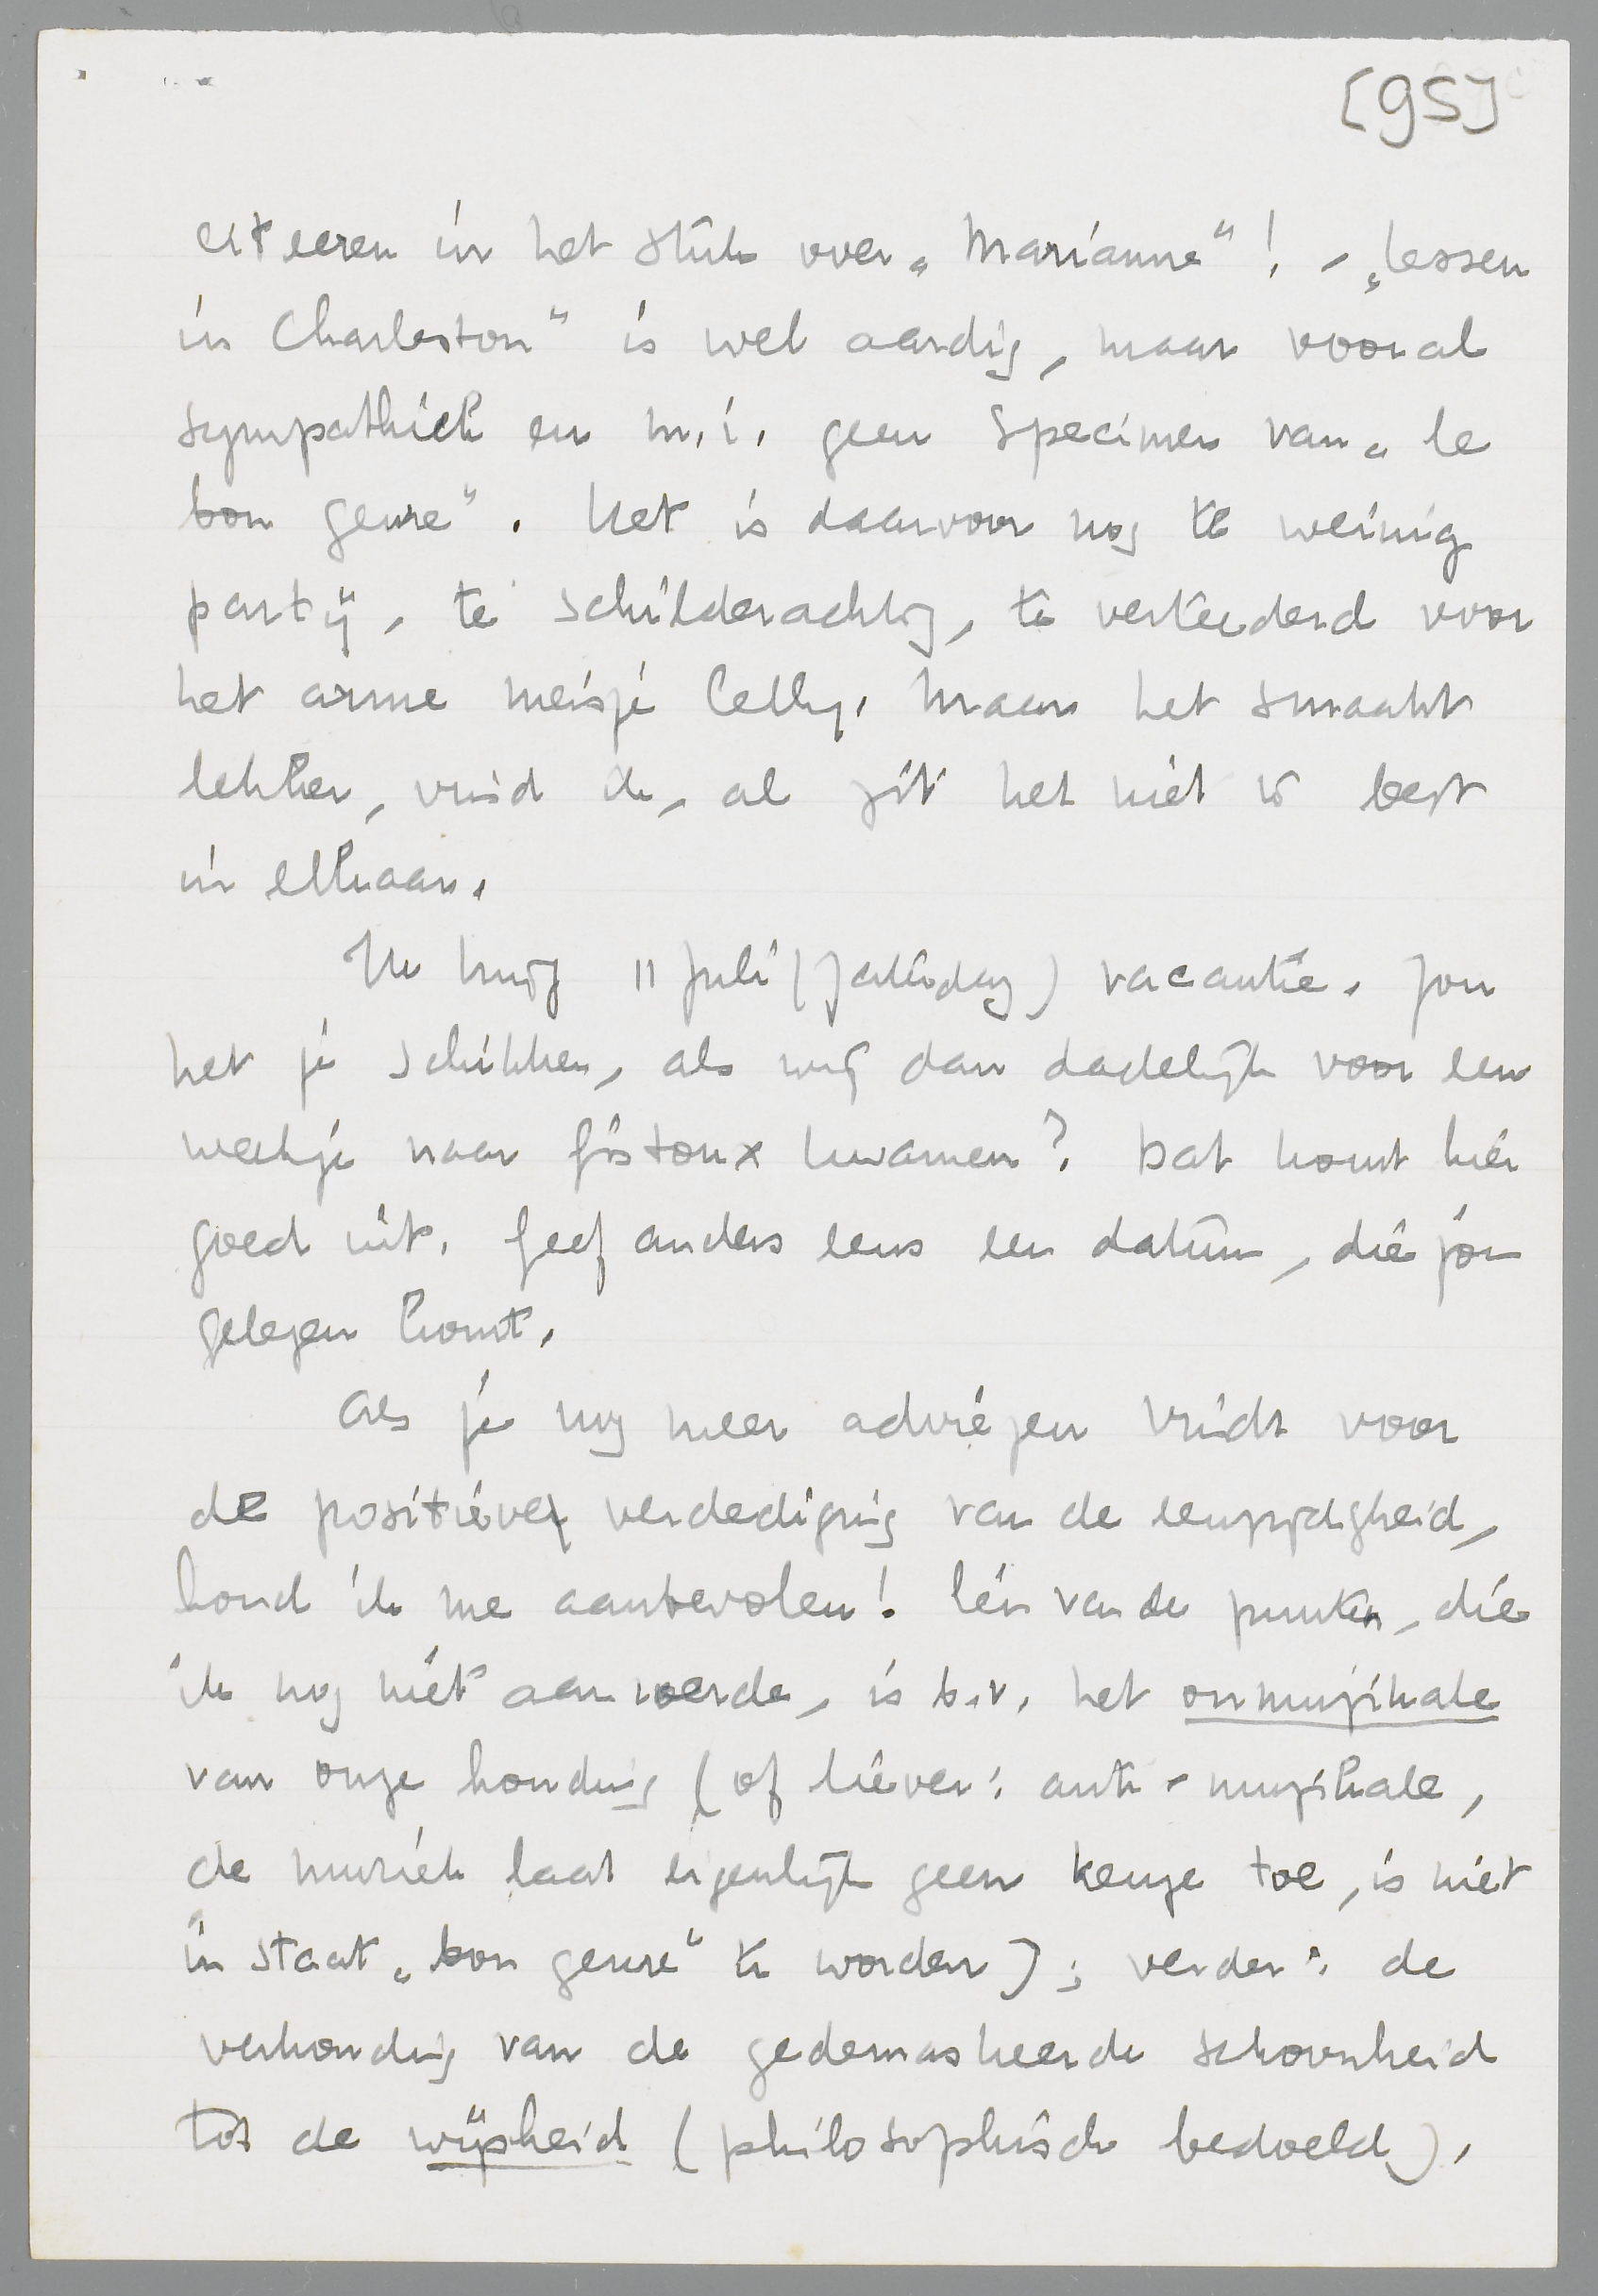 [95]
citeeren in het stuk over „Marianne"! - „Lessen
in Charleston" is wel aardig, maar vooral
sympathiek en m.i. geen specimen van „le
bon genre". Het is daarvoor nog te weinig
partij, te schilderachtig, te verteederd voor
het arme meisje Celly. Maar het smaakt
lekker, vind ik, al zit het niet zo best
in elkaar.
Ik krijg 11 Juli (Zaterdag) vacantie. Zou
het je schikken, als wij dan dadelijk voor een
weekje naar Gistoux kwamen? Dat komt hier
goed uit. Geef anders eens een datum, die jou
gelegen komt.
Als je nog meer adviezen vindt voor
de positieve verdediging van de eenzijdigheid,
houd ik me aanbevolen! Eén van de punten, die
ik nog niet aanroerde, is b.v. het onmuzikale
van onze houding (of liever: anti-muzikale,
de muziek laat eigenlijk geen keuze toe, is niet
in staat „bon genre" te worden); verder: de
verhouding van de gedemaskeerde schoonheid
tot de wijsheid (philosophisch bedoeld).